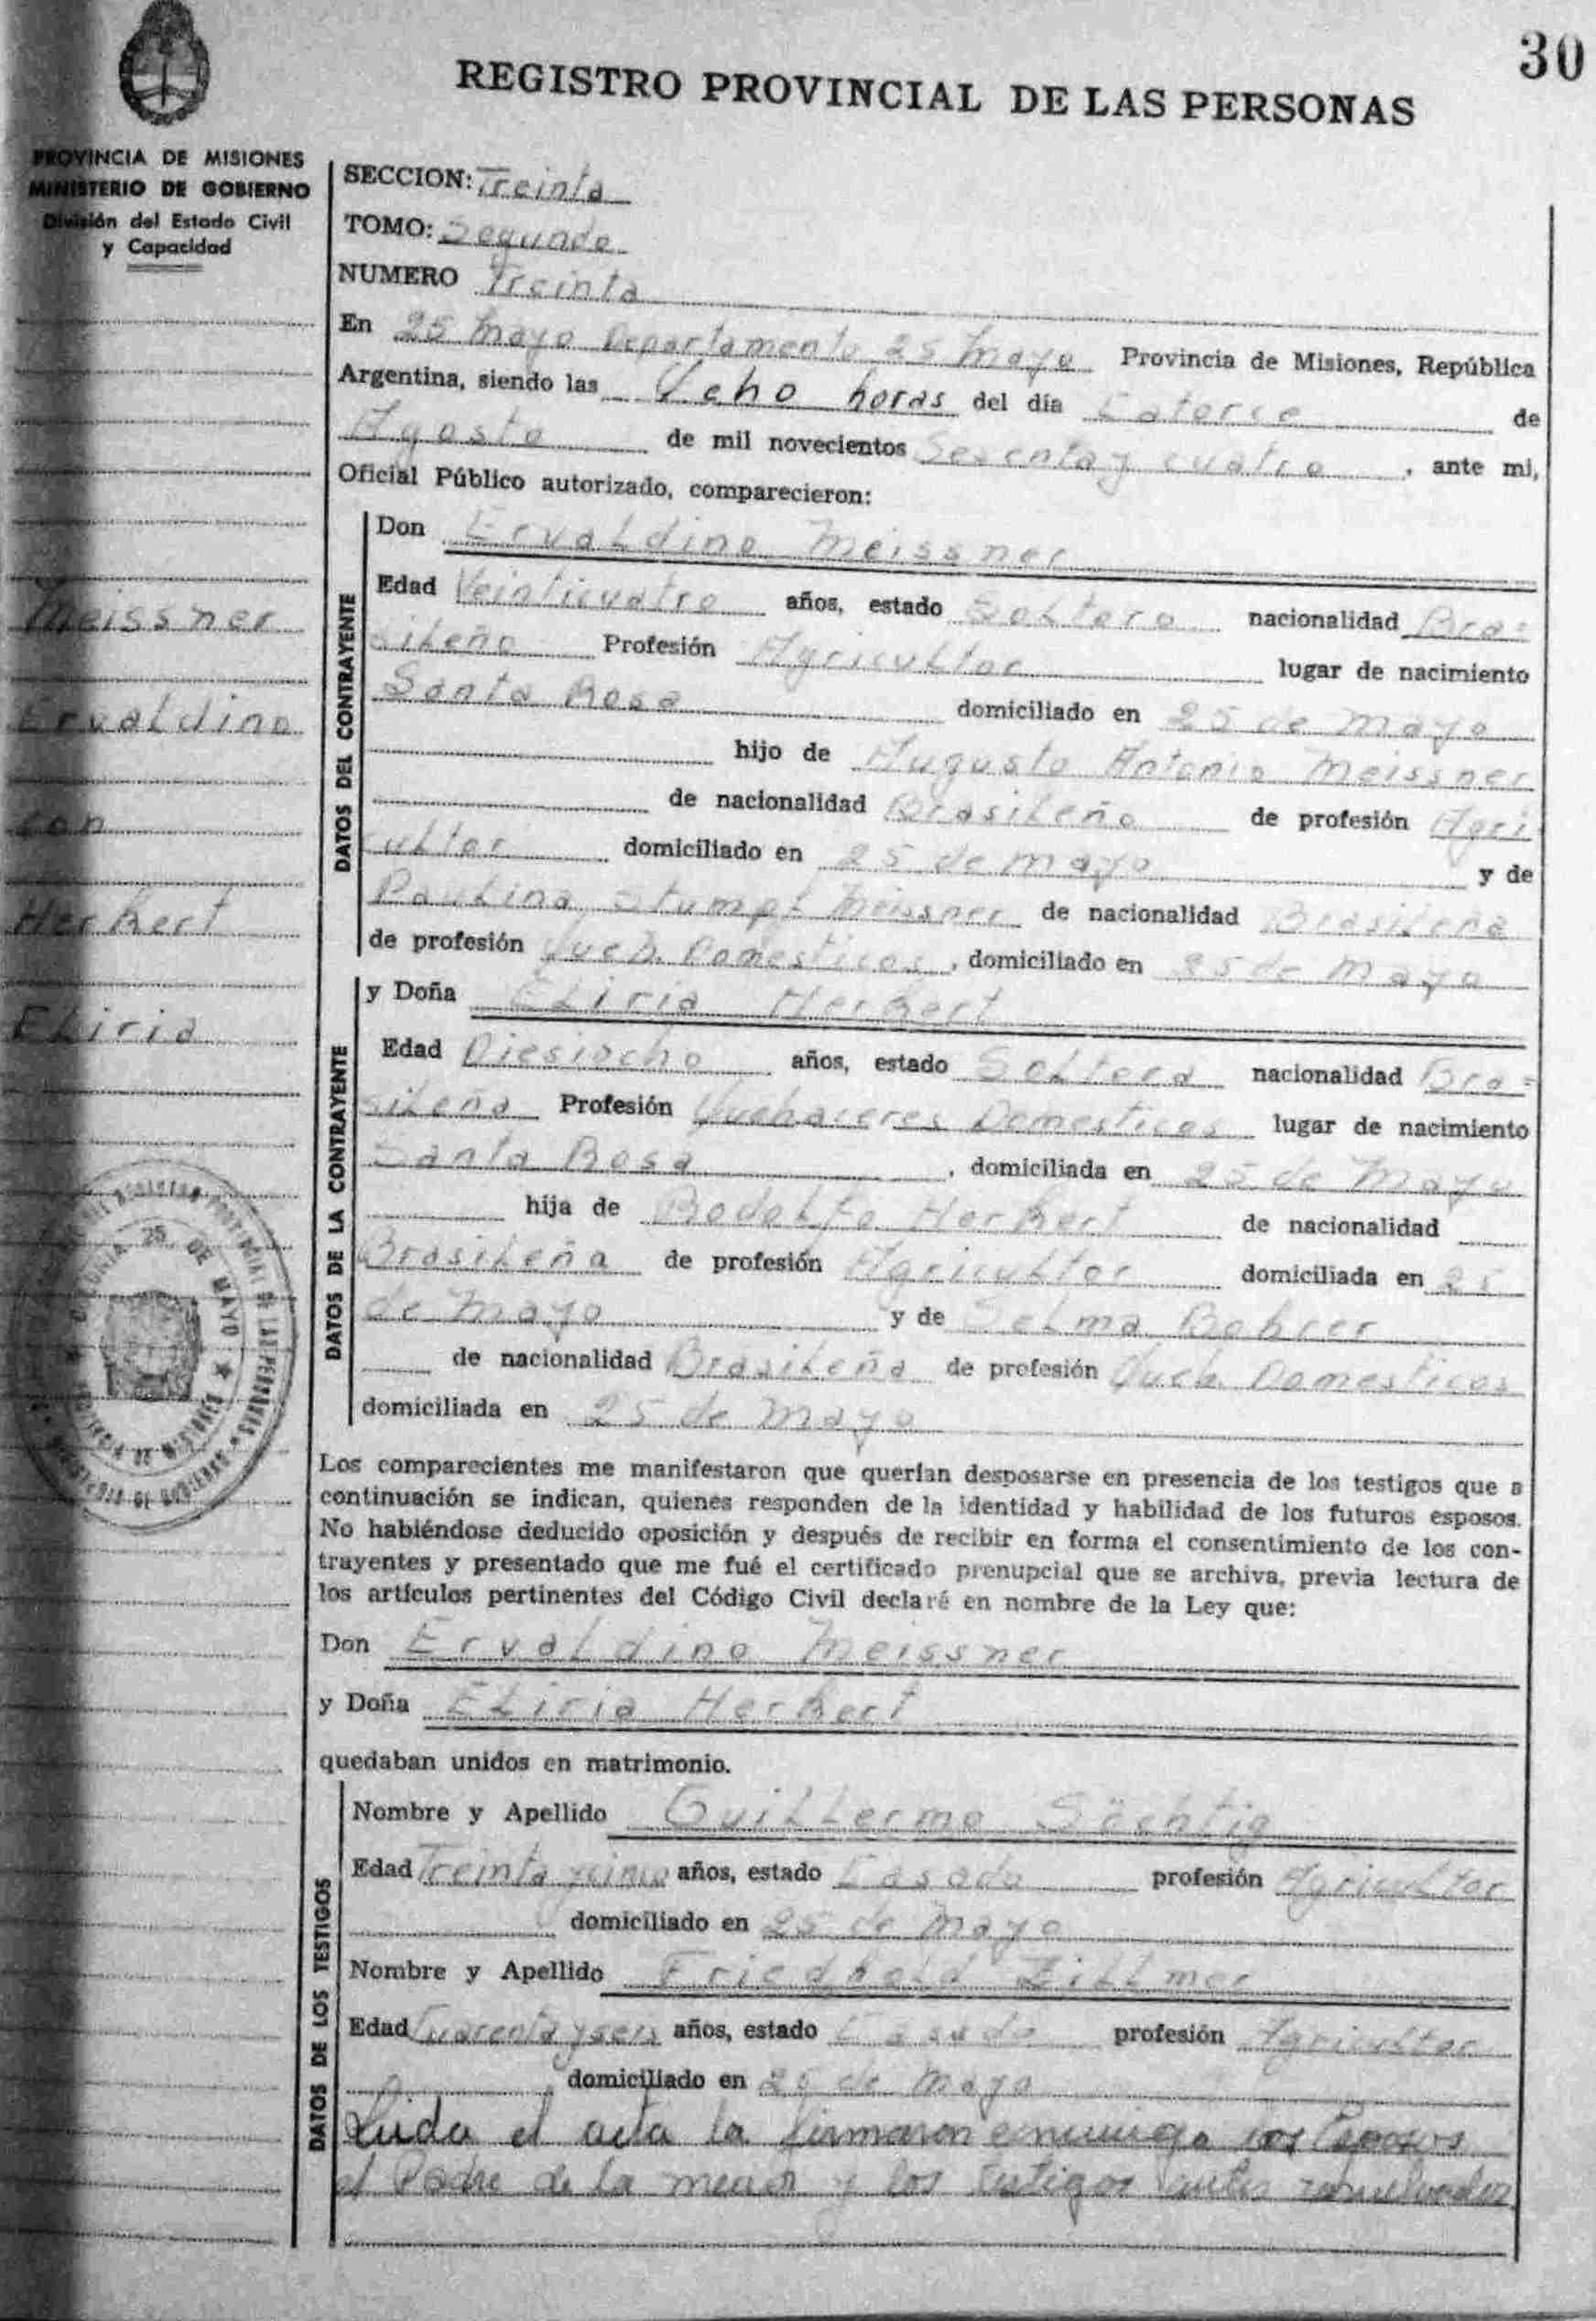 30
REGISTRO PROVINCIAL DE LAS PERSONAS
PROVINCIA DE MISIONES
MINISTERIO DE GOBIERNO
División del Estado Civil
y Capacidad
SECCION: Treinta
TOMO: Segundo
NUMERO Treinta
En 25 Mayo Departamento 25 Mayo Provincia de Misiones, República
Argentina, siendo las Ocho horas del día Catorse de
Agosto de mil novecientos Sesenta y cuatro, ante mi,
Oficial Público autorizado, comparecieron:
Meissner
Ervaldino
con
Herkert
Eliria
DATOS DEL CONTRAYENTE
Don Ervaldino Meissner
Edad Veinticuatro años, estado Soltero nacionalidad Bra=
sileño Profesión Agricultor lugar de nacimiento
Santa Rosa domiciliado en 25 de Mayo
hijo de Augusto Antonio Meissner
de nacionalidad Brasileño de profesión Agri
cultor domiciliado en 25 de Mayo y de
Paulina Stumpf Meissner de nacionalidad Brasileña
de profesión Queh. Domesticos, domiciliado en 25 de Mayo
DATOS DE LA CONTRAYENTE
y Doña Eliria Herkert
Edad Diesiocho años, estado Soltera nacionalidad Bra=
sileña Profesión Quehaceres Domesticos lugar de nacimiento
Santa Rosa, domiciliada en 25 de Mayo
hija de Rodolfo Herkert de nacionalidad
Brasileña de profesión Agricultor domiciliada en 25
de Mayo y de Selma Bohrer
de nacionalidad Brasileña de profesión Queh. Domesticos
domiciliada en 25 de Mayo
Los comparecientes me manifestaron que querían desposarse en presencia de los testigos que a
continuación se indican, quienes responden de la identidad y habilidad de los futuros esposos.
No habiéndose deducido oposición y después de recibir en forma el consentimiento de los con-
trayentes y presentado que me fué el certificado prenupcial que se archiva, previa lectura de
los artículos pertinentes del Código Civil declaré en nombre de la Ley que:
Don Ervaldino Meissner
y Doña Eliria Herkert
quedaban unidos en matrimonio.
DATOS DE LOS TESTIGOS
Nombre y Apellido Guillermo Söchtig
Edad Treinta y cinco años, estado Casado profesión Agricultor
domiciliado en 25 de Mayo
Nombre y Apellido Friedhold Zillmer
Edad Cuarenta y seis años, estado Casado profesión Agricultor
domiciliado en 25 de Mayo
Leida el acta la firmaron conmigo los Esposos
el Padre de la menor y los testigos antes